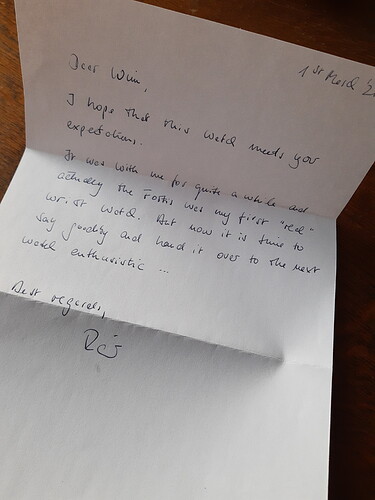 1st March
Dear Wim,
I hope that this watch meets your
expectations.
It was with me for quite a while and
actually the Fortis was my first "real"
wrist watch. But now it is time to
say goodby and hand it over to the next
watch enthusiastic ...
Best regards,